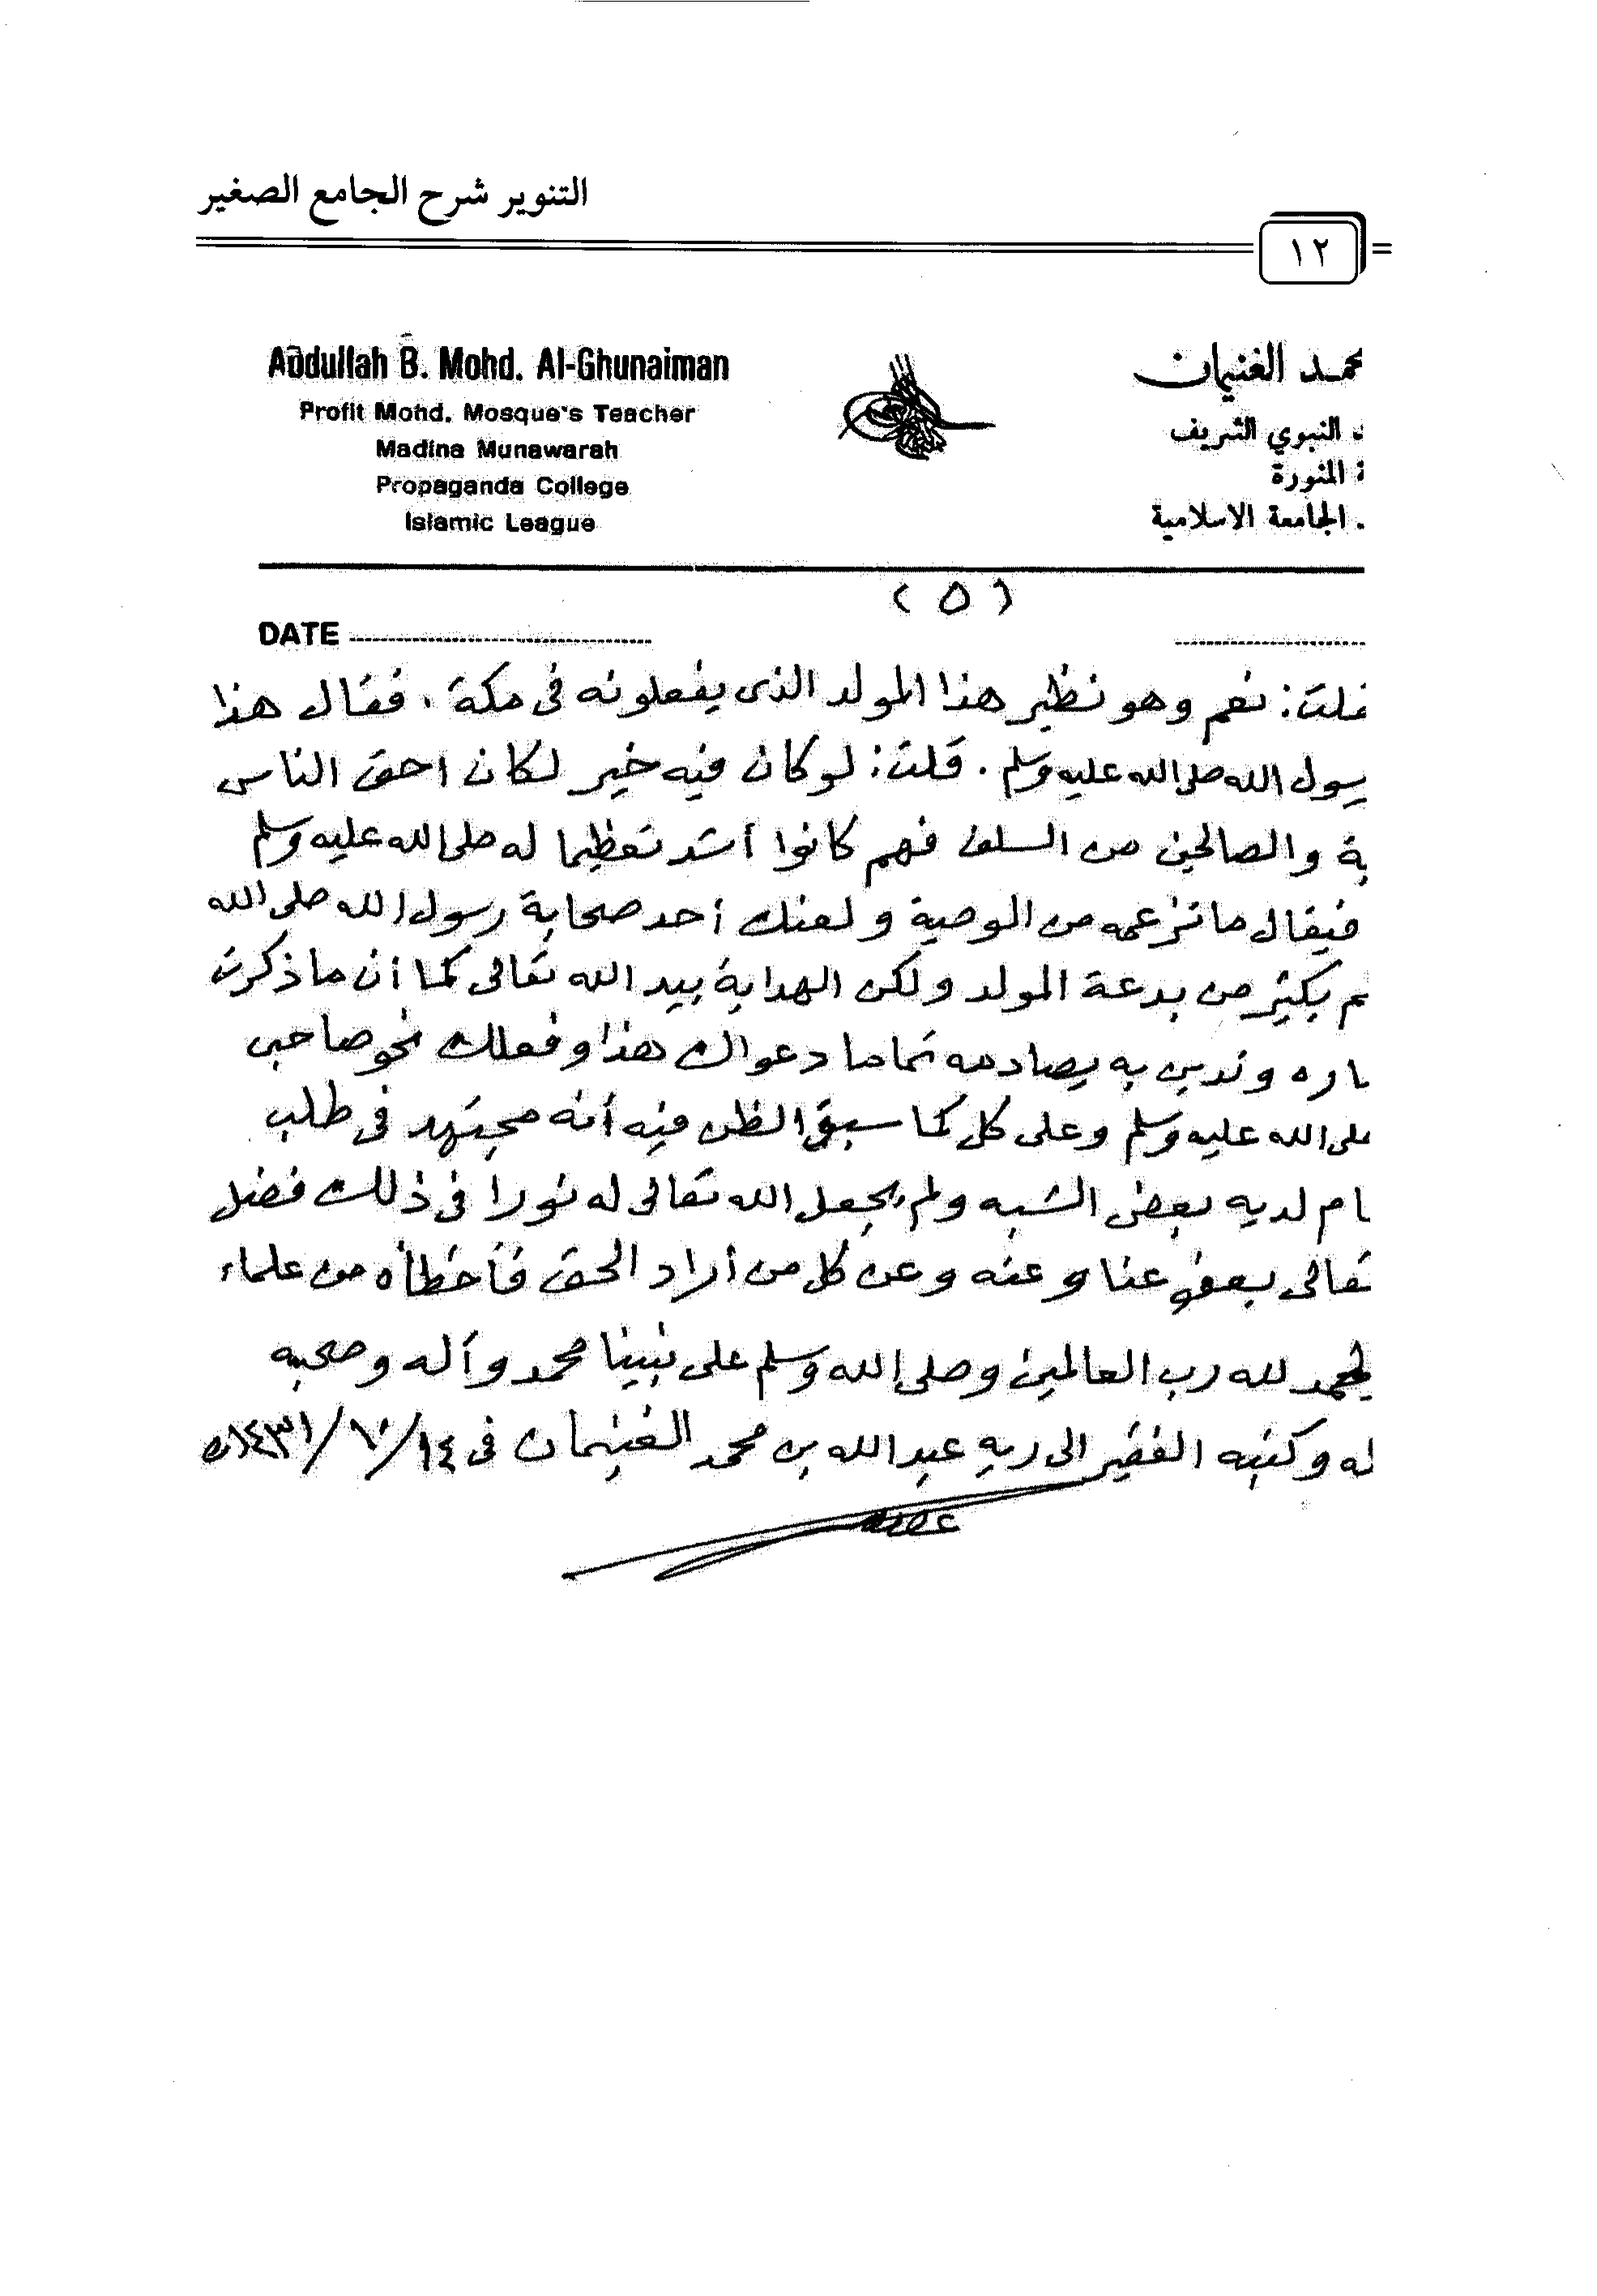 التنوير شرح الجامع الصغير
١٢
Abdullah B. Mohd. Al-Ghunaiman
Profit Mohd. Mosque's Teacher
Madina Munawarah
Propaganda College
Islamic League
محمد الغنيمان
النبوي الشريف
المنورة
الجامعة الاسلامية
(٥)
DATE
قلت: نعم وهو نظير هذا المولد الذى يفعلونه فى مكة، فقال هذا
سول الله صلى الله عليه وسلم. قلت: لو كان فيه خير لكان احق الناس
بة والصالحين من السلف فهم كانوا أشد تعظيما له صلى الله عليه وسلم
فيقال ما تزعمه من الوصية ولعنك أحد صحابة رسول الله صلى الله
م بكثير من بدعة المولد ولكن الهداية بيد الله تعالى كما أن ما ذكرت
اره وتدين به يصادمه تماما دعواك هذا وفعلك نحو صاحبى
لى الله عليه وسلم وعلى كل كما سبق الظن فيه أنه مجتهد فى طلب
ام لديه بعض الشبه ولم يجعل الله تعالى له نورا فى ذلك فضل
تعالى يعفو عنا وعنه وعن كل من أراد الحق فأخطأه من علماء
لحمد لله رب العالمين وصلى الله وسلم على نبينا محمد وآله وصحبه
له وكتبه الفقير الى ربه عبد الله بن محمد الغنيمان فى ١٤/ /١٤٣١ه